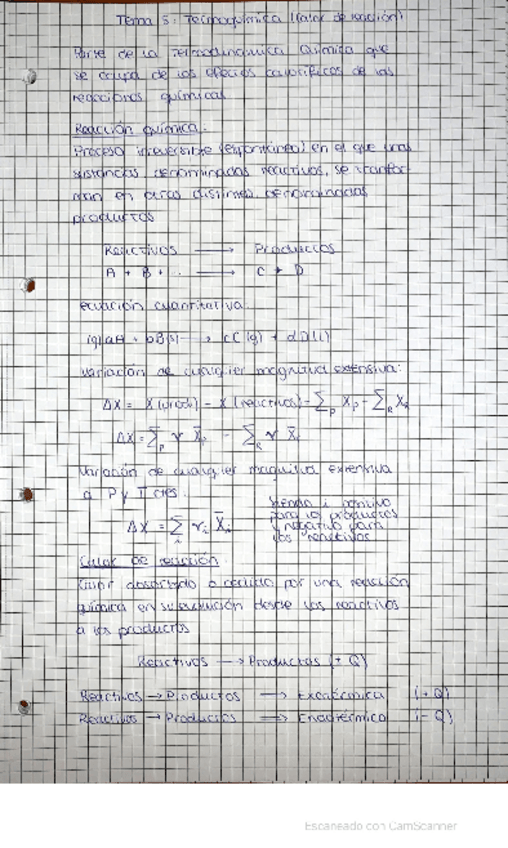 Tema 5: Termoquímica (Calor de reacción)
Parte de la Termodinámica Química que
se ocupa de los efectos caloríficos de las
reacciones químicas
Reacción química:
Proceso irreversible (espontáneo) en el que unas
sustancias, denominadas reactivos, se transfor-
man en otras distintas, denominadas
productos
Reactivos → Productos
A + B + ... → C + D
ecuación cuantitativa
(g)aA + bB(s) → cC(g) + dD(l)
variación de cualquier magnitud extensiva:
ΔX = X(prod) - X(reactivos) = Σ_P X_P - Σ_R X_R
ΔX = Σ_P γ X̄_P - Σ_R γ X̄_R
Variación de cualquier magnitud extensiva
a P y T ctes:
ΔX = Σ_i γ_i X̄_i
siendo i positivo
para los productos
y negativo para
los "reactivos"
Calor de reacción
Calor absorbido o cedido por una reacción
química en su evolución desde los reactivos
a los productos
Reactivos → Productos (± Q)
Reactivos → Productos ⟹ Exotérmica (+Q)
Reactivos → Productos ⟹ Endotérmico (-Q)
Escaneado con CamScanner